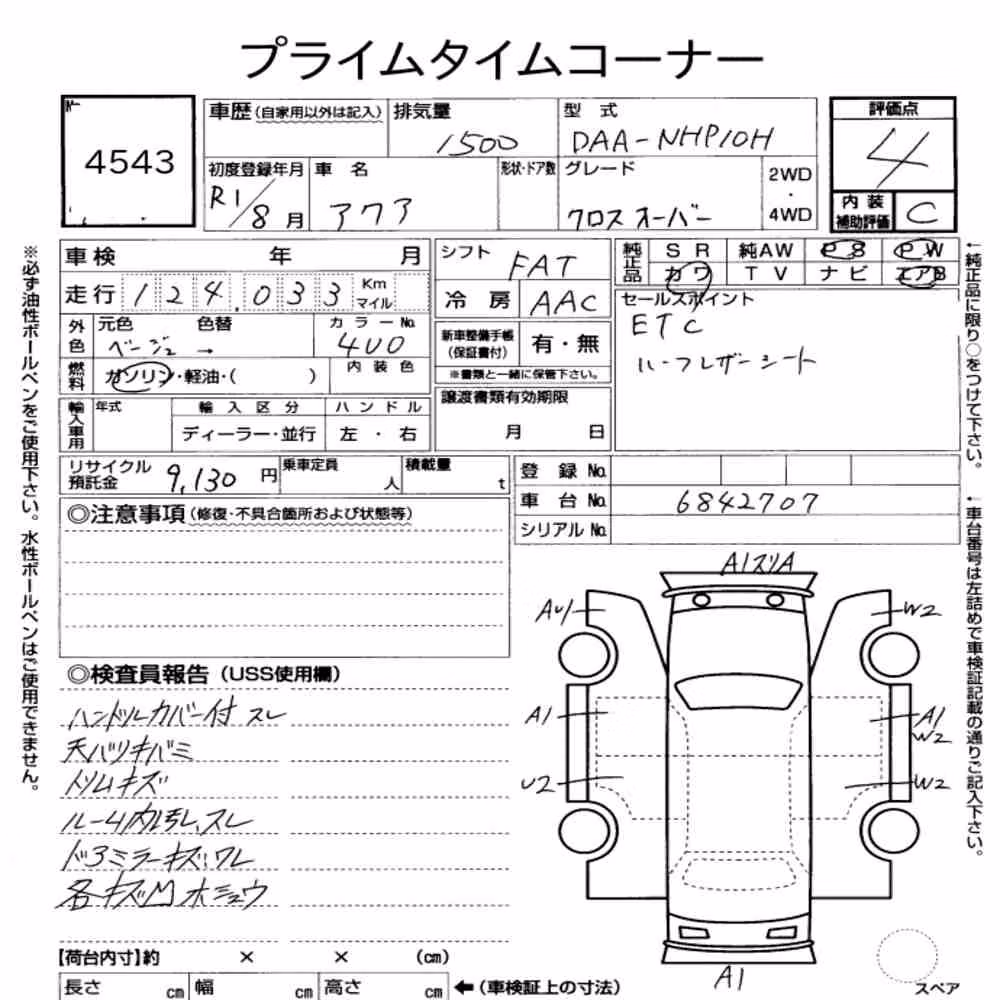 プライムタイムコーナー
4543
車歴 (自家用以外は記入) 排気量 型式 評価点
1500 DAA-NHP10H 4
初度登録年月 車名 形状・ドア数 グレード 2WD・4WD
R1/8月 アクア クロスオーバー
内装補助評価 C
車検 年 月
シフト FAT
純正品 SR 純AW PS PW
カワ TV ナビ エアB
走行 124,033 Km マイル
冷房 AAC
セールスポイント
ETC
ハーフレザーシート
外色 元色 色替 カラーNo.
ベージュ → 4U0
新車整備手帳(保証書付) 有・無
※書類と一緒に保管下さい。
燃料 ガソリン・軽油・( ) 内装色
譲渡書類有効期限
月 日
輸入車用 年式 輸入区分 ハンドル
ディーラー・並行 左・右
リサイクル預託金 9,130円 乗車定員 人 積載量 t
登録No.
車台No. 6842707
シリアルNo.
◎注意事項 (修復・不具合箇所および状態等)
◎検査員報告 (USS使用欄)
ハンドルカバー付 スレ
天バリキバミ
トリムキズ
ルーム内汚レ、スレ
ドアミラーキズ、ワレ
各キズ凹ホシュウ
A1スリA
AU1
W2
A1
A1
W2
U2
W2
A1
スペア
【荷台内寸】約 × × (cm)
長さ cm 幅 cm 高さ cm ←(車検証上の寸法)
※必ず油性ボールペンをご使用下さい。水性ボールペンはご使用できません。
←純正品に限り○をつけて下さい。
←車台番号は左詰めで車検証記載の通りご記入下さい。